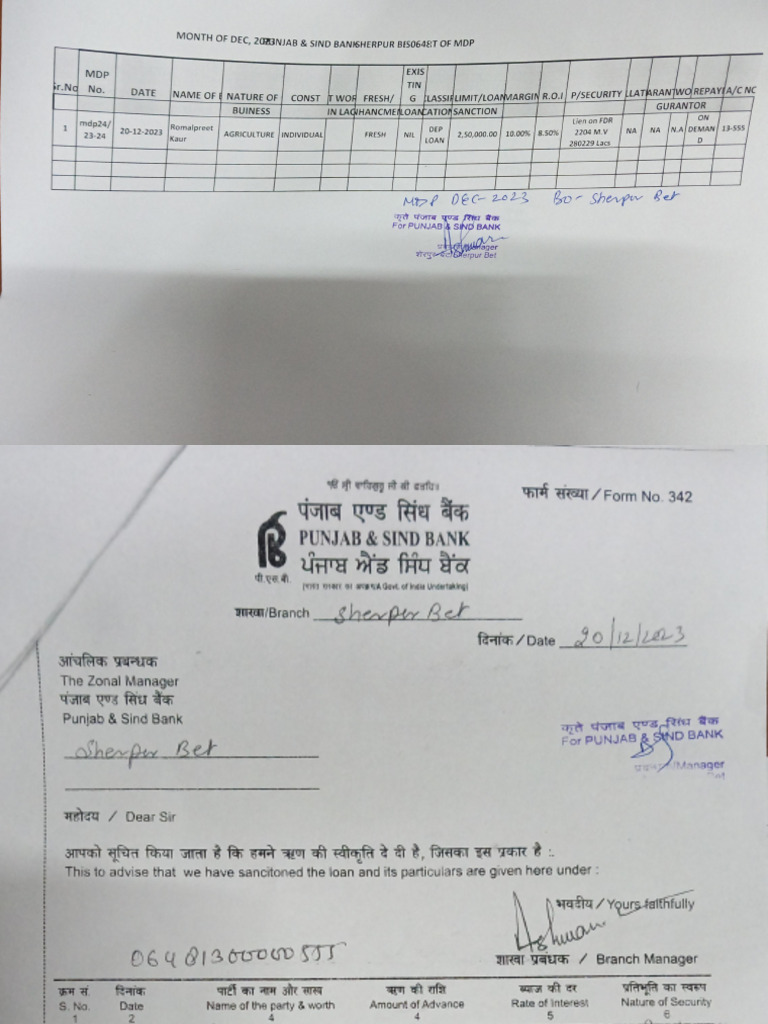 MONTH OF DEC, 2023 PUNJAB & SIND BANK SHERPUR BET OF MDP
Sr.No MDP No. DATE NAME OF NATURE OF BUINESS CONST FRESH/ EXISTING LIMIT/LOAN SANCTION MARGIN R.O.I P/SECURITY GURANTOR REPAY A/C NO
1 mdp24/23-24 20-12-2023 Romalpreet Kaur AGRICULTURE INDIVIDUAL FRESH NIL DEP LOAN 2,50,000.00 10.00% 8.50% Lien on FDR 2204 M.V 280229 Lacs NA NA N.A ON DEMAND 13-555
MDP DEC-2023 BO- Sherpur Bet
कृते पंजाब एण्ड सिंध बैंक
For PUNJAB & SIND BANK
Manager
Sherpur Bet
फार्म संख्या / Form No. 342
पंजाब एण्ड सिंध बैंक
PUNJAB & SIND BANK
ਪੰਜਾਬ ਐਂਡ ਸਿੰਧ ਬੈਂਕ
पी.एस.बी. (A Govt. of India Undertaking)
शाखा/Branch Sherpur Bet
दिनांक / Date 20/12/2023
आंचलिक प्रबन्धक
The Zonal Manager
पंजाब एण्ड सिंध बैंक
Punjab & Sind Bank
Sherpur Bet
कृते पंजाब एण्ड सिंध बैंक
For PUNJAB & SIND BANK
Manager
महोदय / Dear Sir
आपको सूचित किया जाता है कि हमने ऋण की स्वीकृति दे दी है, जिसका इस प्रकार है :.
This to advise that we have sancitoned the loan and its particulars are given here under :
भवदीय / Yours faithfully
Ashwan
06481300000555
शाखा प्रबंधक / Branch Manager
क्रम सं. दिनांक पार्टी का नाम और साख ऋण की राशि ब्याज की दर प्रतिभूति का स्वरूप
S. No. Date Name of the party & worth Amount of Advance Rate of Interest Nature of Security
1 2 4 4 5 6